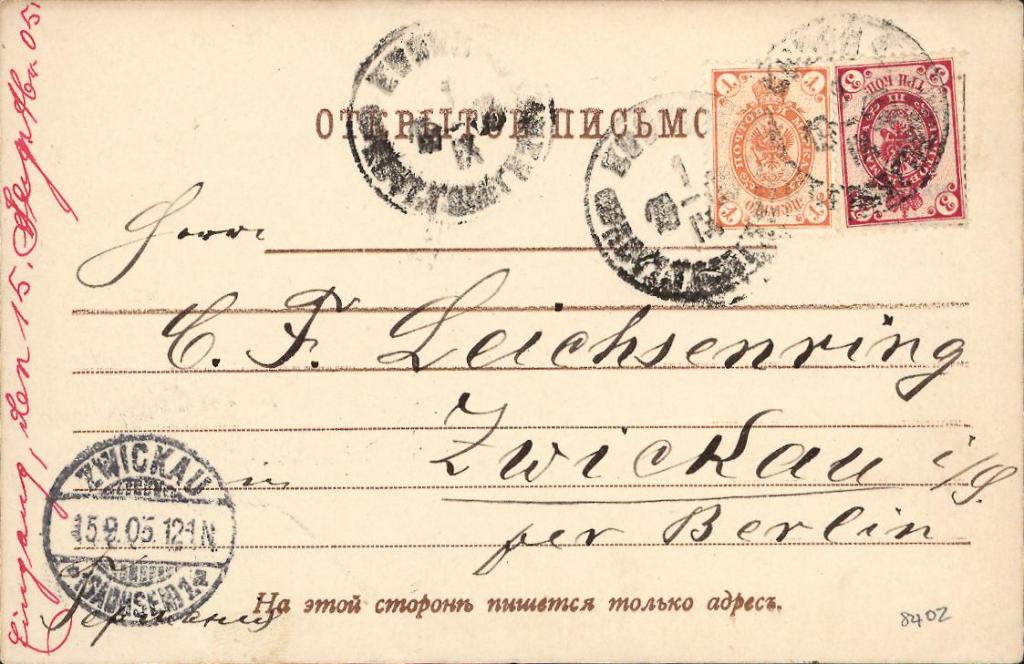 ОТКРЫТОЕ ПИСЬМО
Herrn
C. F. Leichsenring
in Zwickau i/S.
per Berlin
Германия
На этой сторонѣ пишется только адресъ.
ZWICKAU
15.9.05. 12-1 N.
(SACHSEN) 2.a
Eingang, den 15. Septbr. 05.
1
1
1
1
3
ТРИ КОП.
3
3
8402